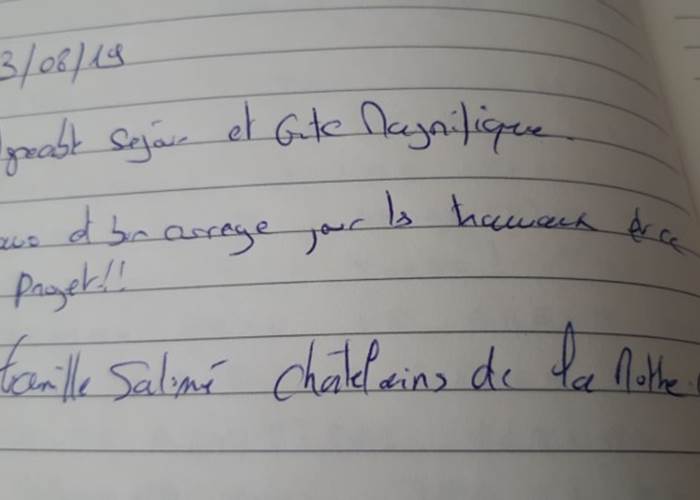 3/08/19
greabt Sejour et Gite Magnifique.
d bon courage pour ls travaux de ce
Projet!!
famille Salomé Châtelains de la Mothe